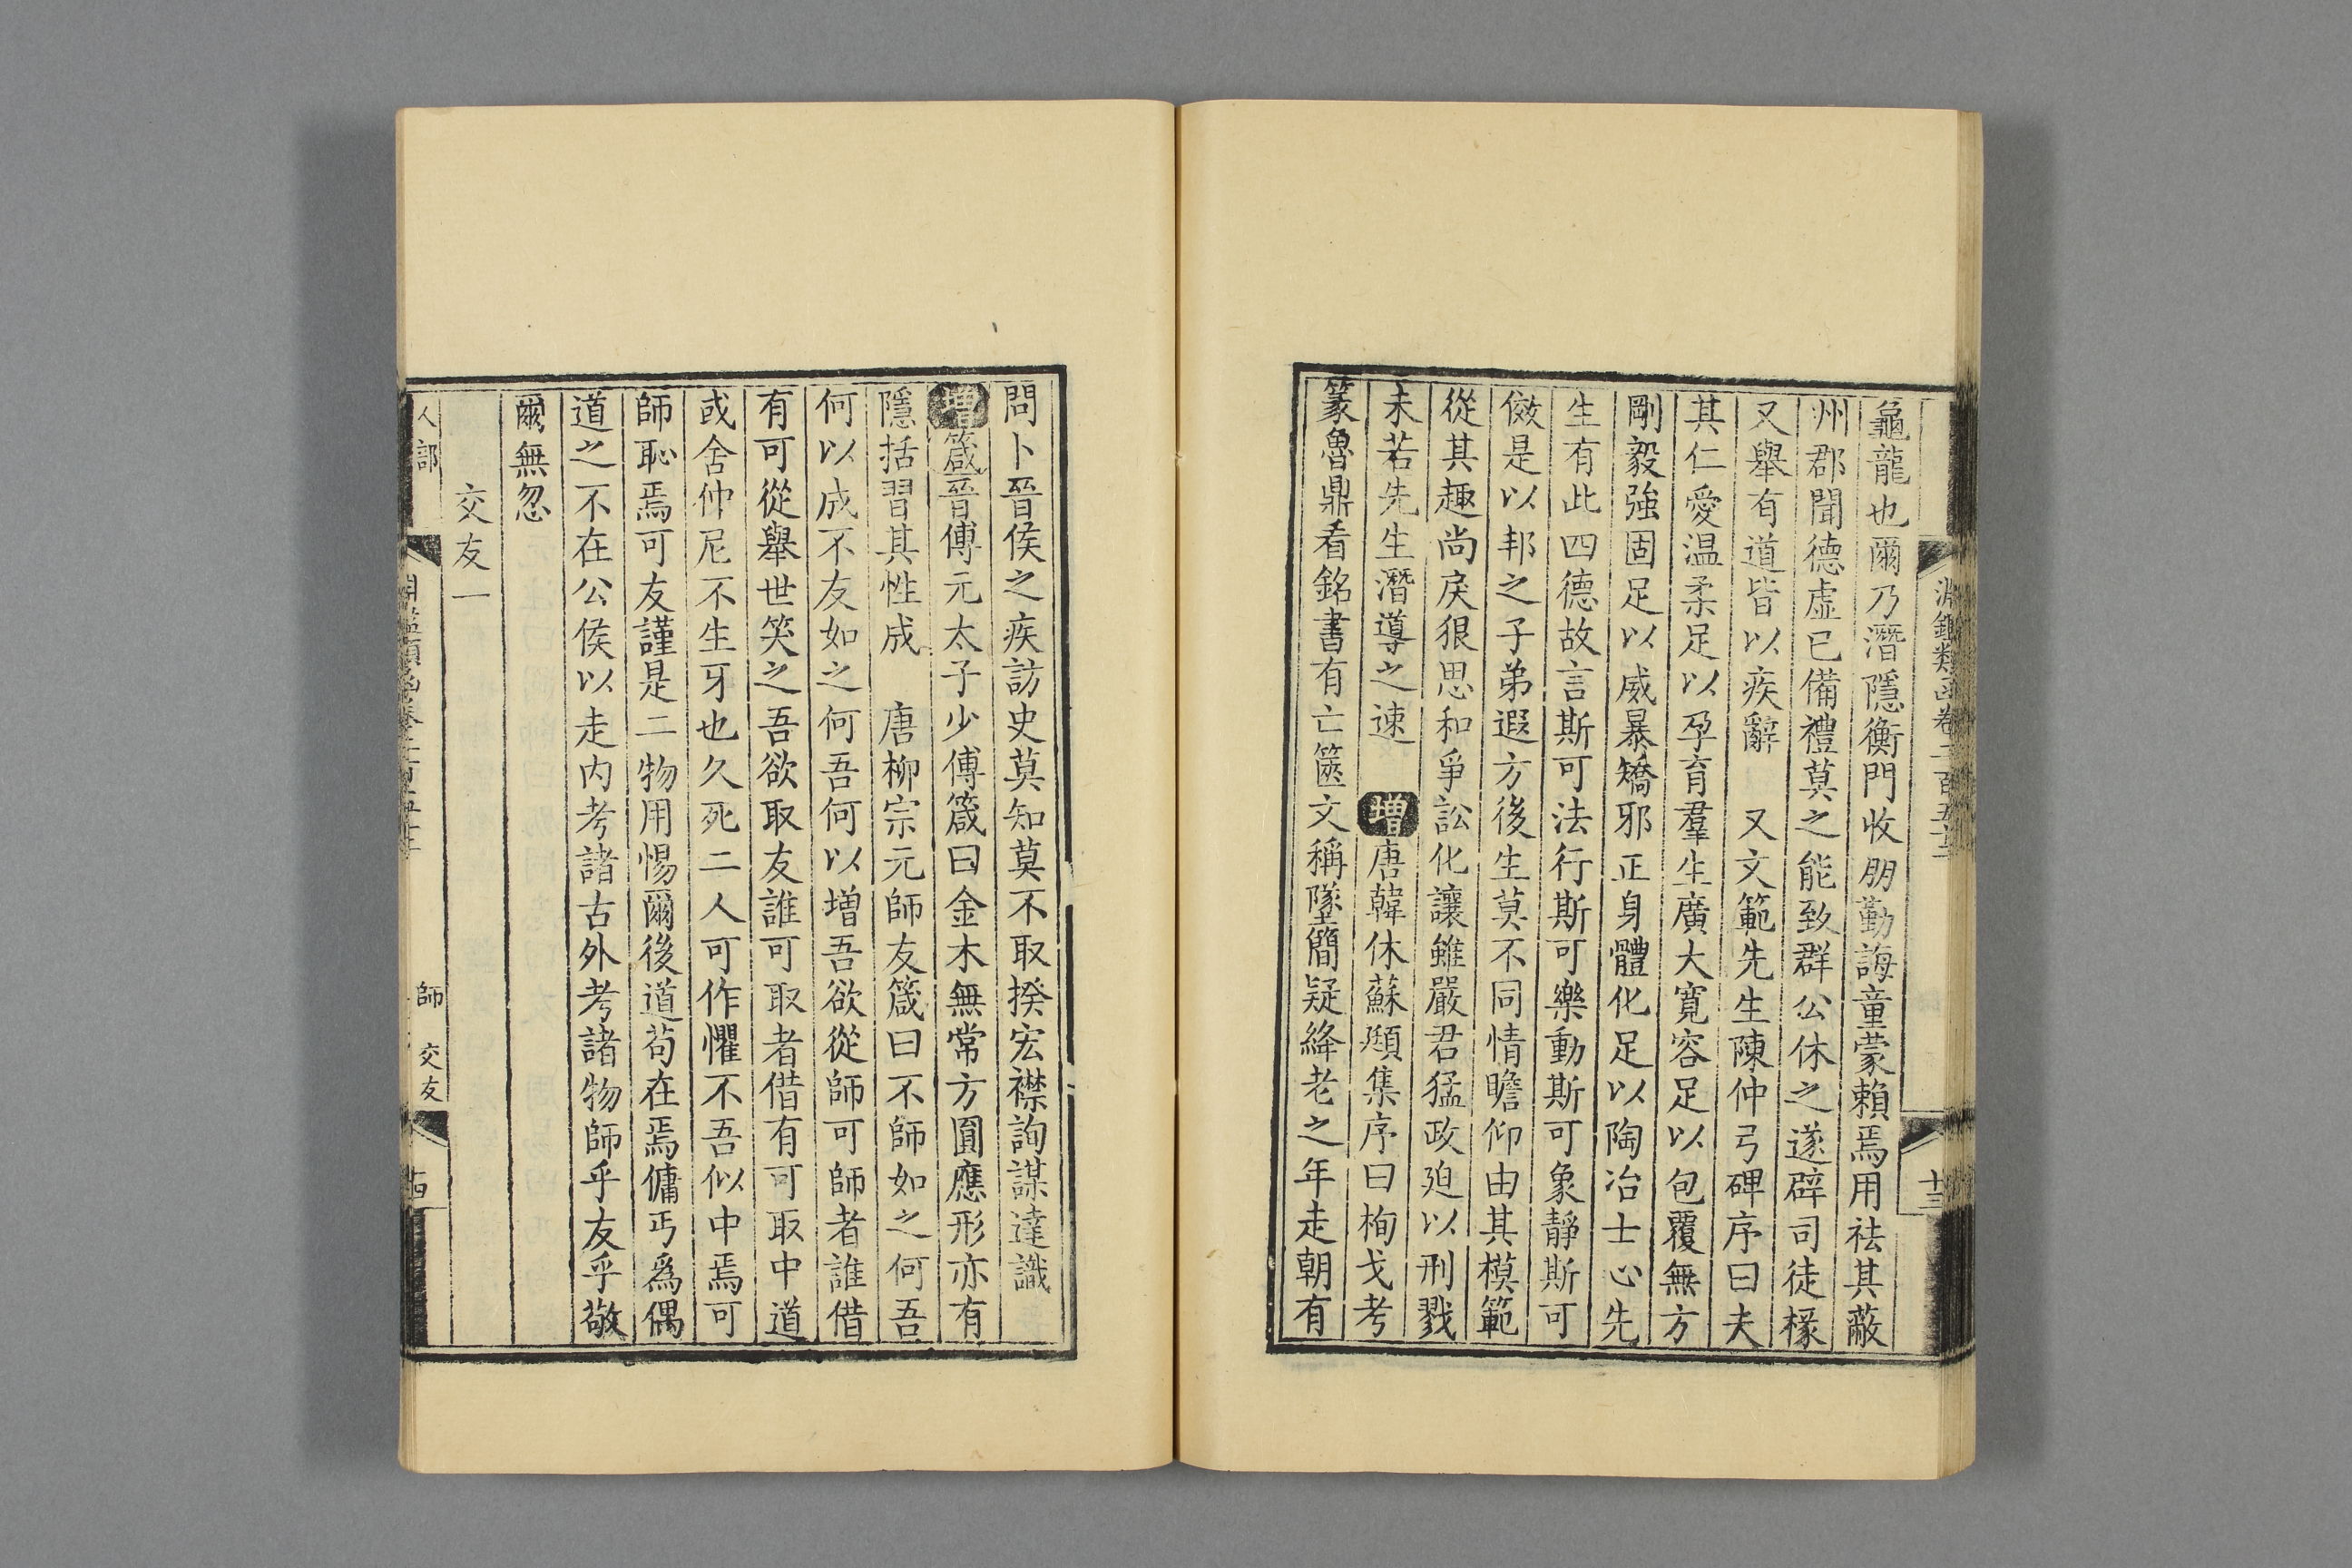 淵鑑類函卷二百五十二
十三
龜龍也爾乃潛隱衡門收朋勤誨童蒙賴焉用祛其蔽
州郡聞德虛已備禮莫之能致群公休之遂辟司徒椽
又舉有道皆以疾辭　又文範先生陳仲弓碑序曰夫
其仁愛温柔足以孕育羣生廣大寛容足以包覆無方
剛毅強固足以威暴矯邪正身體化足以陶冶士心先
生有此四德故言斯可法行斯可樂動斯可象靜斯可
傚是以邦之子弟遐方後生莫不同情瞻仰由其模範
從其趣尚戾狠思和爭訟化讓雖嚴君猛政廹以刑戮
未若先生潛導之速　增唐韓休蘇頲集序曰栒戈考
篆魯鼎看銘書有亡篋文稱墜簡疑絳老之年走朝有
問卜晉侯之疾訪史莫知莫不取揆宏襟詢謀達識
增箴晉傅元太子少傅箴曰金木無常方圓應形亦有
隱括習其性成　唐柳宗元師友箴曰不師如之何吾
何以成不友如之何吾何以增吾欲從師可師者誰借
有可從舉世笑之吾欲取友誰可取者借有可取中道
或舍仲尼不生牙也久死二人可作懼不吾似中焉可
師恥焉可友謹是二物用惕爾後道苟在焉傭丐爲偶
道之不在公侯以走内考諸古外考諸物師乎友乎敬
爾無忽
交友一
人部
師 交友
十四